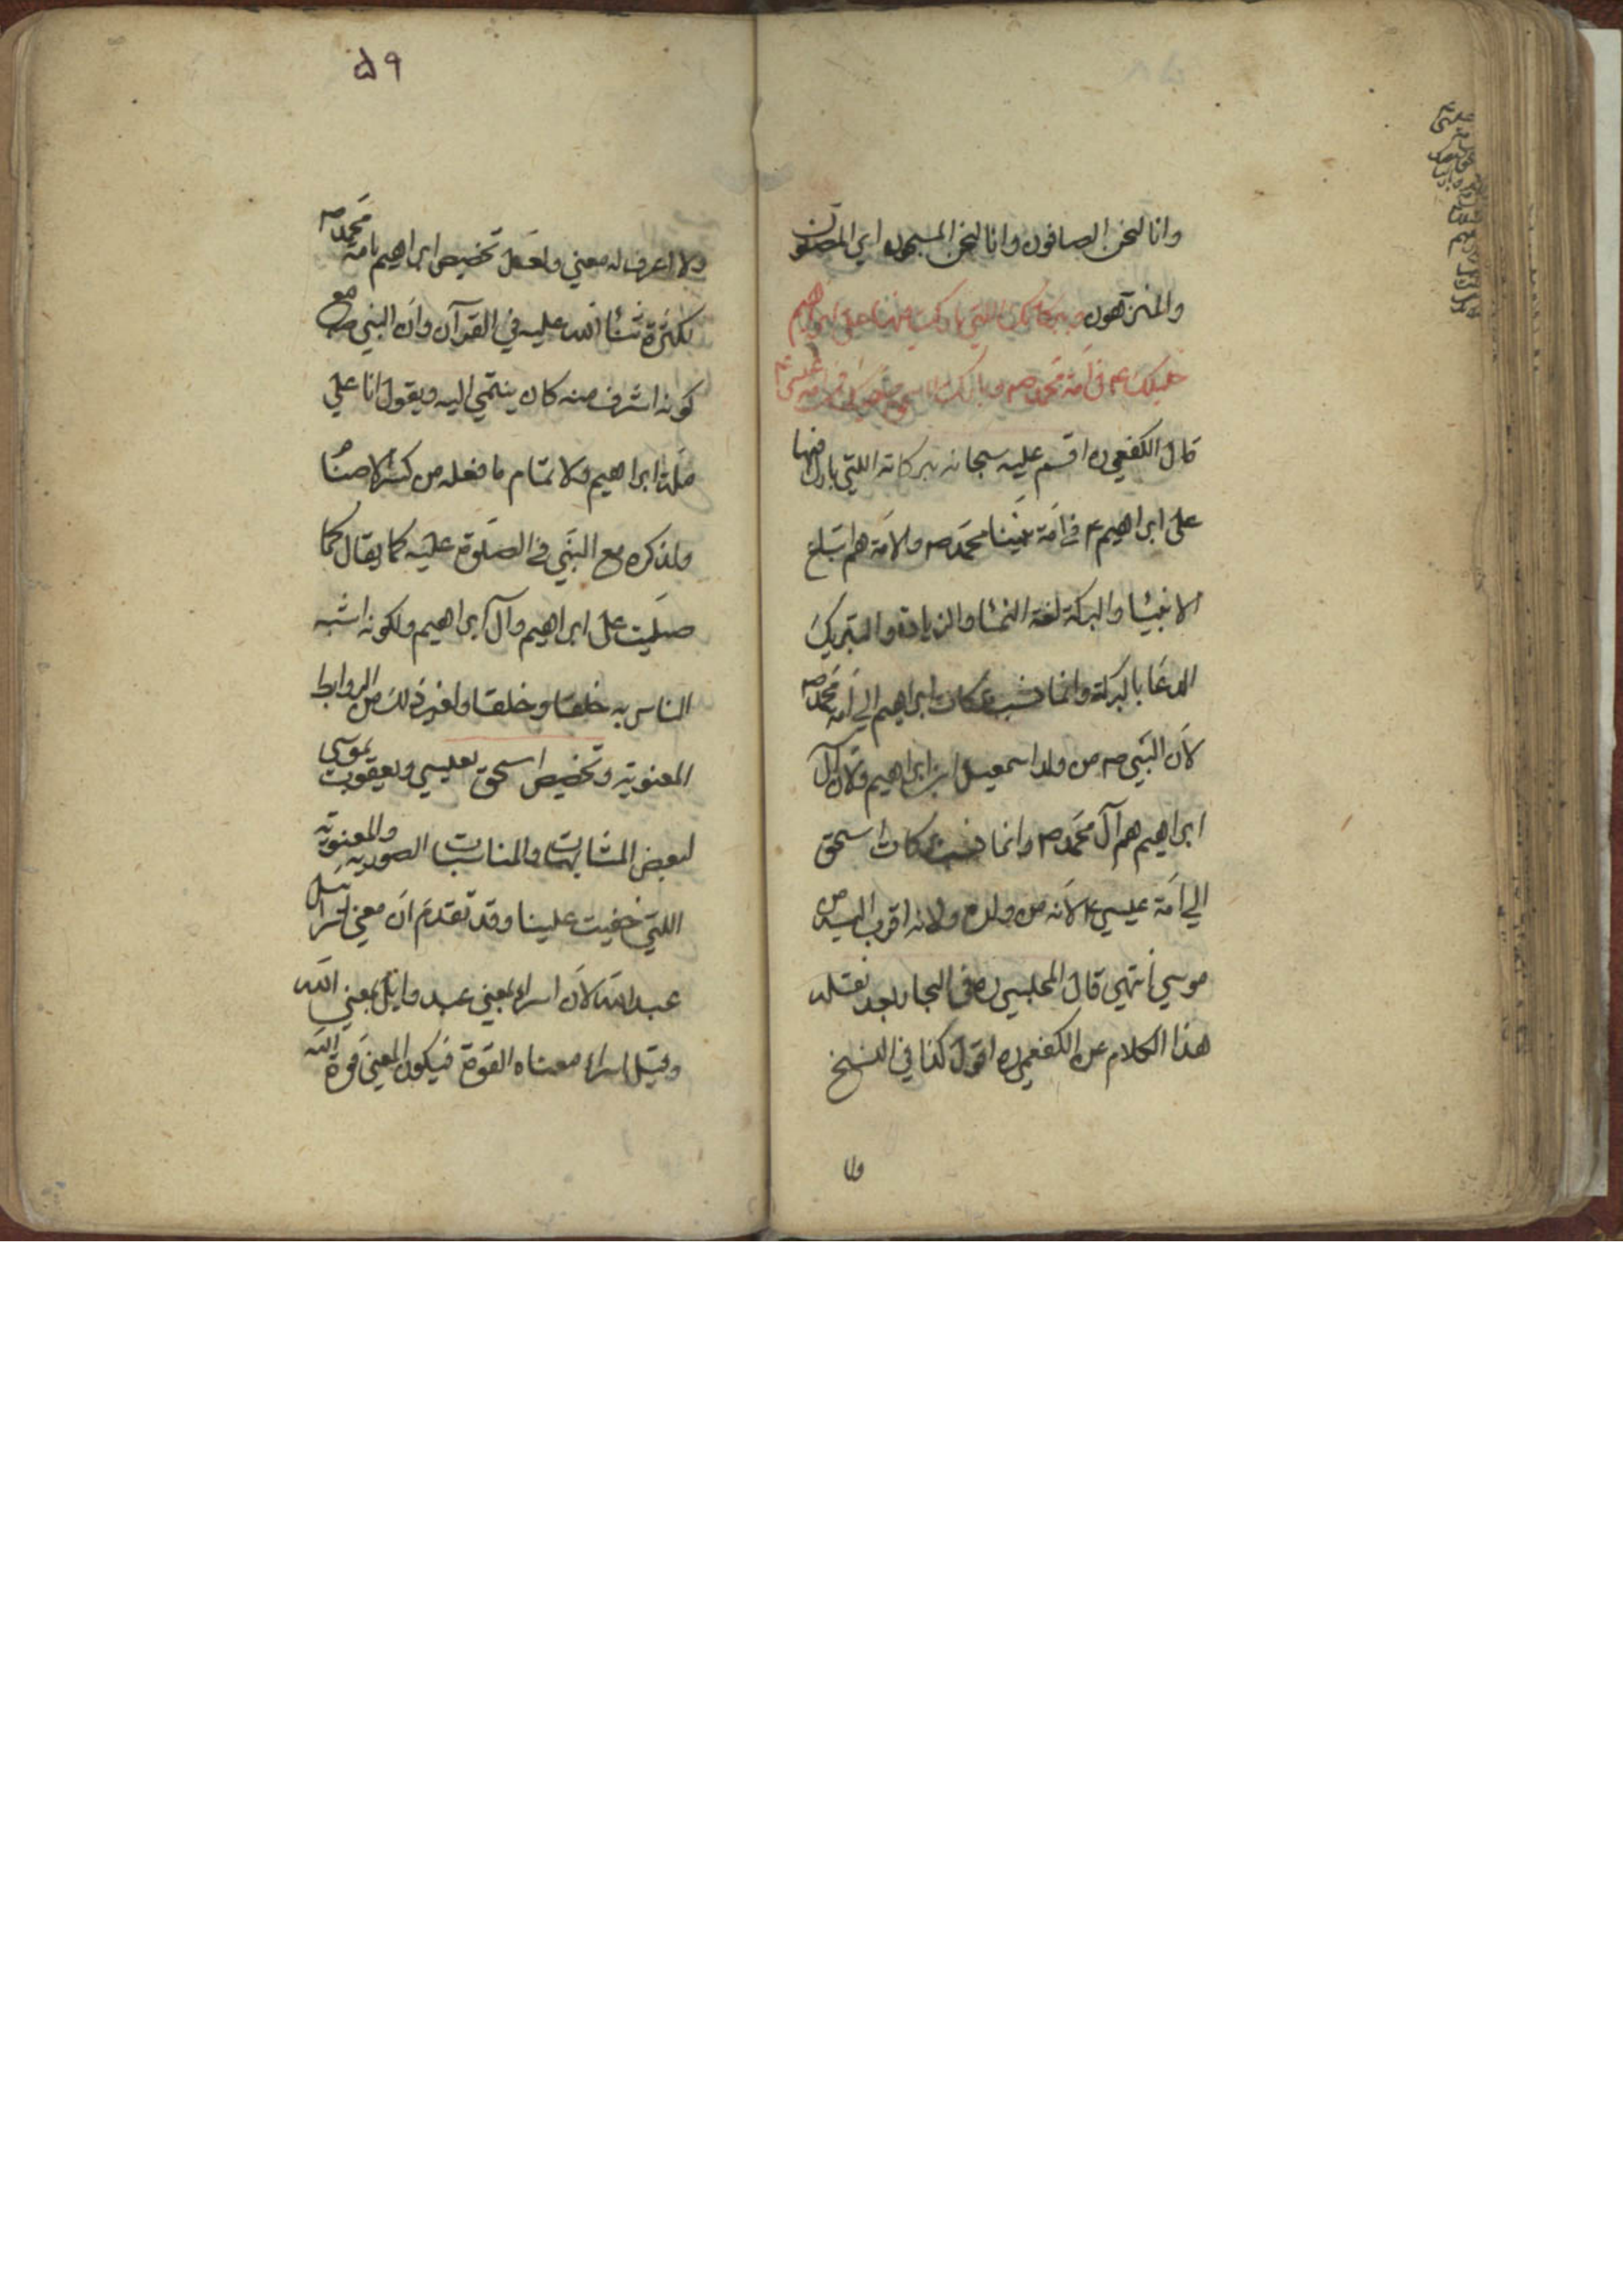 وانا لنحن الصافون وانا لنحن المسبحون اي المصلون
والمنزهون وببركاتك اللتي باركت فيها على ابراهيم
خليلك ع في امة محمد ص وباركت لاسحق صفيك في امة عيسى ع
قال الكفعمي ره اقسم عليه سبحانه ببركاته اللتي بارك فيها
على ابراهيم ع في امة نبينا محمد ص والامة هم اتباع
الانبيا والبركة لغة النما والزيادة والتبريك
الدعا بالبركة وانما نسب بركات ابراهيم الي امة محمد ص
لان النبي ص من ولد اسمعيل ابن ابراهيم ولان آل
ابراهيم هم آل محمد ص وانما نسب بركات اسحق
الي امة عيسي ع لانه من ولده ولانه اقرب اليه من
موسي انتهي قال المجلسي ره في البحار بعد نقله
هذا الكلام عن الكفعمي ره اقول كذا في النسخ
ولا
۵۹
ولا اعرف له معني ولعل تخصيص ابراهيم بامة محمد ص
لكثرة ثنا الله عليه في القرآن وان النبي ص مع
كونه اشرف منه كان ينتمي اليه ويقول انا علي
ملة ابراهيم ولاتمام ما فعله من كسر الاصنام
ولذكره مع النبي في الصلوة عليه كما يقال كما
صليت على ابراهيم وآل ابراهيم ولكونه اشبه
الناس به خلقا وخلقا ولغير ذلك من الروابط
المعنوية وتخصيص اسحق بعيسي ويعقوب بموسى
لبعض المشابهات والمناسبات الصورية والمعنوية
اللتي خفيت علينا وقد تقدم ان معني اسرائيل
عبد الله لان اسراء بمعني عبد وايل بمعني الله
وقيل اسراء معناه القوة فيكون المعني قوة الله